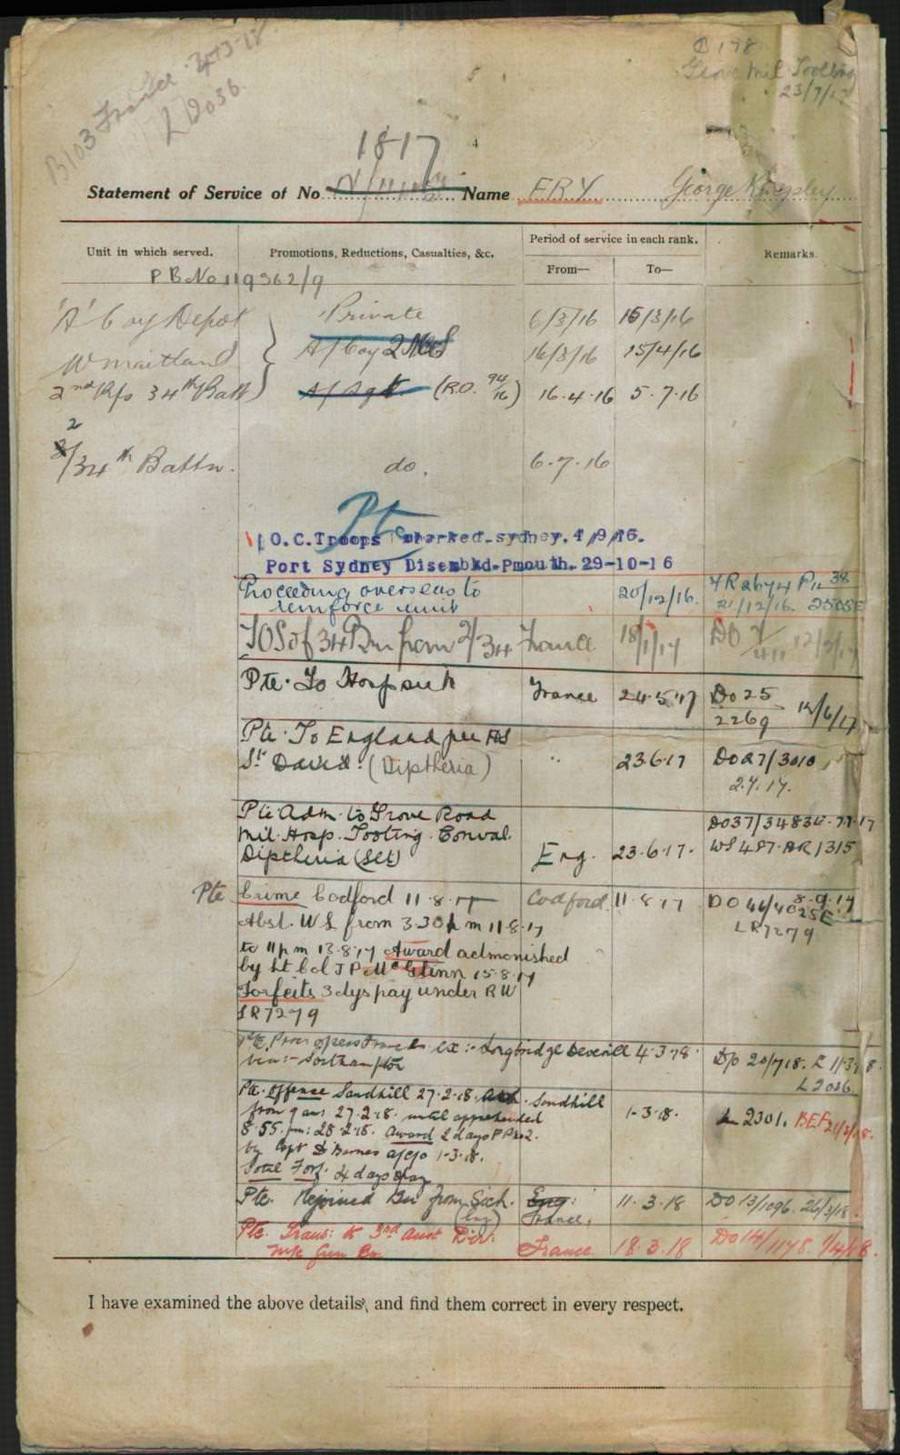 B103 France
L 2036
Grove Mil Tooting
23/7/17
1817
Statement of Service of No Name FRY George Kingsley
Unit in which served. Promotions, Reductions, Casualties, &c. Period of service in each rank. Remarks.
From— To—
P B No 119362/9
'A' Coy Depot Private 6/3/16 15/3/16
W maitland A/Coy QMS 16/3/16 15/4/16
2nd Rfs 34th Batt A/Sgt (R.O. 94/16) 16.4.16 5.7.16
2/34th Battn. do. 6.7.16
Pte
O.C. Troops Sydney. 4/9/16.
Port Sydney Disembkd-Pmouth. 29-10-16
Proceeding overseas to 20/12/16.
reinforce unit 21/12/16.
TOS of 34 Bn from 2/34 France 18/1/17 DO
Pte. To Hosp sick France 24.5.17 Do 25/2269 12/6/17
Pte. To England per HS
St David. (Diptheria) " 23.6.17 Do 27/3010
2.7.17.
Pte Adm. to Grove Road
Mil. Hosp. Tooting. Conval.
Diptheria (Sev) Eng. 23.6.17. WS 487. AR 1315
Pte Crime Codford 11.8.17 Codford 11.8.17 DO 46/4025E 8.9.17
Abst. W L from 3.30 p m 11.8.17 LR7279
to 11 p m 13.8.17 Award admonished
by Lt Col J P McGlinn 15.8.17
Forfeits 3 dys pay under R W
LR7279
Pte. Proc o/seas France ex:- Longbridge Deverill 4.3.18
via:- Southampton L 2036
Pte. Offence Sandhill 27.2.18. Sandhill
from 9 am 27.2.18. until apprehended 1.3.18. L 2301. BEF
8.55. pm: 28.2.18. Award 2 days F P No 2.
by Capt 1.3.18.
Total Forf. 4 days pay
Pte. Rejoined Bn from Sick. (Eng) Eng: France. 11.3.18 DO 13/1096. 26/3/18.
Pte. Trans: to 3rd Aust Div. France 18.3.18 Do 14/1178. 1/4/18.
M/c Gun Bn
I have examined the above details, and find them correct in every respect.